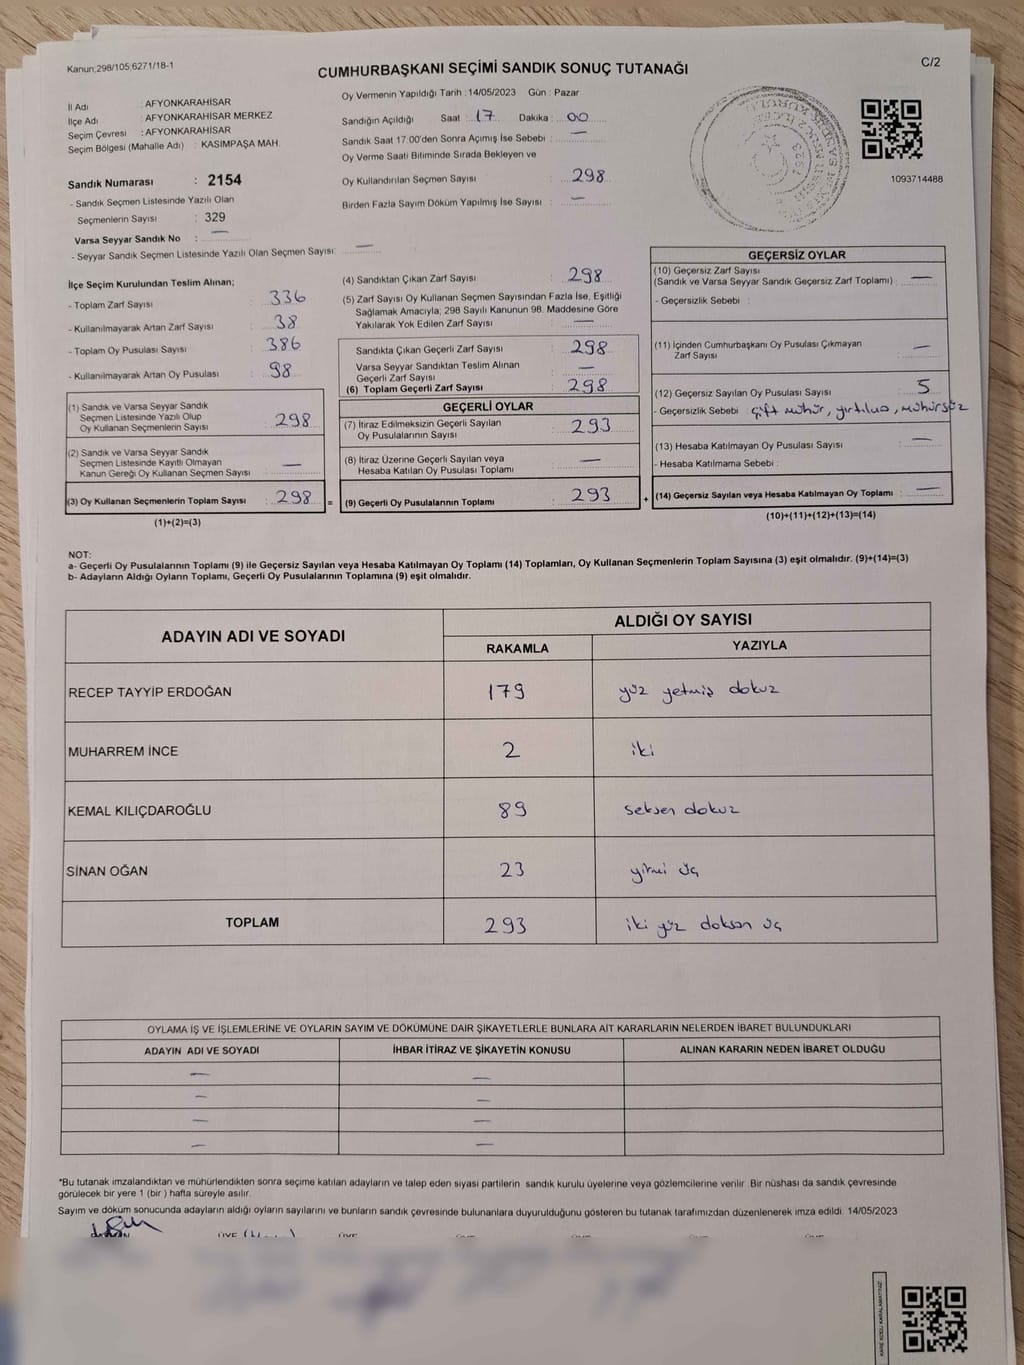 Kanun;298/105;6271/18-1
C/2
CUMHURBAŞKANI SEÇİMİ SANDIK SONUÇ TUTANAĞI
İl Adı : AFYONKARAHİSAR
İlçe Adı : AFYONKARAHİSAR MERKEZ
Seçim Çevresi : AFYONKARAHİSAR
Seçim Bölgesi (Mahalle Adı) : KASIMPAŞA MAH.
Sandık Numarası : 2154
- Sandık Seçmen Listesinde Yazılı Olan
Seçmenlerin Sayısı : 329
Varsa Seyyar Sandık No : —
- Seyyar Sandık Seçmen Listesinde Yazılı Olan Seçmen Sayısı: —
Oy Vermenin Yapıldığı Tarih : 14/05/2023 Gün : Pazar
Sandığın Açıldığı Saat : 17 Dakika : 00
Sandık Saat 17.00'den Sonra Açımış İse Sebebi : —
Oy Verme Saati Bitiminde Sırada Bekleyen ve
Oy Kullandırılan Seçmen Sayısı : 298
Birden Fazla Sayım Döküm Yapılmış İse Sayısı : —
1093714488
İlçe Seçim Kurulundan Teslim Alınan;
- Toplam Zarf Sayısı : 336
- Kullanılmayarak Artan Zarf Sayısı : 38
- Toplam Oy Pusulası Sayısı : 386
- Kullanılmayarak Artan Oy Pusulası : 98
(1) Sandık ve Varsa Seyyar Sandık
Seçmen Listesinde Yazılı Olup
Oy Kullanan Seçmenlerin Sayısı : 298
(2) Sandık ve Varsa Seyyar Sandık
Seçmen Listesinde Kayıtlı Olmayan
Kanun Gereği Oy Kullanan Seçmen Sayısı : —
(3) Oy Kullanan Seçmenlerin Toplam Sayısı : 298 =
(1)+(2)=(3)
(4) Sandıktan Çıkan Zarf Sayısı : 298
(5) Zarf Sayısı Oy Kullanan Seçmen Sayısından Fazla İse, Eşitliği
Sağlamak Amacıyla; 298 Sayılı Kanunun 98. Maddesine Göre
Yakılarak Yok Edilen Zarf Sayısı : —
Sandıkta Çıkan Geçerli Zarf Sayısı : 298
Varsa Seyyar Sandıktan Teslim Alınan
Geçerli Zarf Sayısı : —
(6) Toplam Geçerli Zarf Sayısı : 298
GEÇERLİ OYLAR
(7) İtiraz Edilmeksizin Geçerli Sayılan
Oy Pusulalarının Sayısı : 293
(8) İtiraz Üzerine Geçerli Sayılan veya
Hesaba Katılan Oy Pusulası Toplamı : —
(9) Geçerli Oy Pusulalarının Toplamı : 293 +
GEÇERSİZ OYLAR
(10) Geçersiz Zarf Sayısı
(Sandık ve Varsa Seyyar Sandık Geçersiz Zarf Toplamı) : —
- Geçersizlik Sebebi :
(11) İçinden Cumhurbaşkanı Oy Pusulası Çıkmayan
Zarf Sayısı : —
(12) Geçersiz Sayılan Oy Pusulası Sayısı : 5
- Geçersizlik Sebebi : çift mühür, yırtılus, mühürsüz
(13) Hesaba Katılmayan Oy Pusulası Sayısı : —
- Hesaba Katılmama Sebebi :
(14) Geçersiz Sayılan veya Hesaba Katılmayan Oy Toplamı : —
(10)+(11)+(12)+(13)=(14)
NOT:
a- Geçerli Oy Pusulalarının Toplamı (9) ile Geçersiz Sayılan veya Hesaba Katılmayan Oy Toplamı (14) Toplamları, Oy Kullanan Seçmenlerin Toplam Sayısına (3) eşit olmalıdır. (9)+(14)=(3)
b- Adayların Aldığı Oyların Toplamı, Geçerli Oy Pusulalarının Toplamına (9) eşit olmalıdır.
ADAYIN ADI VE SOYADI ALDIĞI OY SAYISI
RAKAMLA YAZIYLA
RECEP TAYYİP ERDOĞAN 179 yüz yetmiş dokuz
MUHARREM İNCE 2 iki
KEMAL KILIÇDAROĞLU 89 seksen dokuz
SİNAN OĞAN 23 yirmi üç
TOPLAM 293 iki yüz doksan üç
OYLAMA İŞ VE İŞLEMLERİNE VE OYLARIN SAYIM VE DÖKÜMÜNE DAİR ŞİKAYETLERLE BUNLARA AİT KARARLARIN NELERDEN İBARET BULUNDUKLARI
ADAYIN ADI VE SOYADI İHBAR İTİRAZ VE ŞİKAYETİN KONUSU ALINAN KARARIN NEDEN İBARET OLDUĞU
— —
— —
— —
— —
*Bu tutanak imzalandıktan ve mühürlendikten sonra seçime katılan adayların ve talep eden siyasi partilerin sandık kurulu üyelerine veya gözlemcilerine verilir. Bir nüshası da sandık çevresinde
görülecek bir yere 1 (bir ) hafta süreyle asılır.
Sayım ve döküm sonucunda adayların aldığı oyların sayılarını ve bunların sandık çevresinde bulunanlara duyurulduğunu gösteren bu tutanak tarafımızdan düzenlenerek imza edildi. 14/05/2023